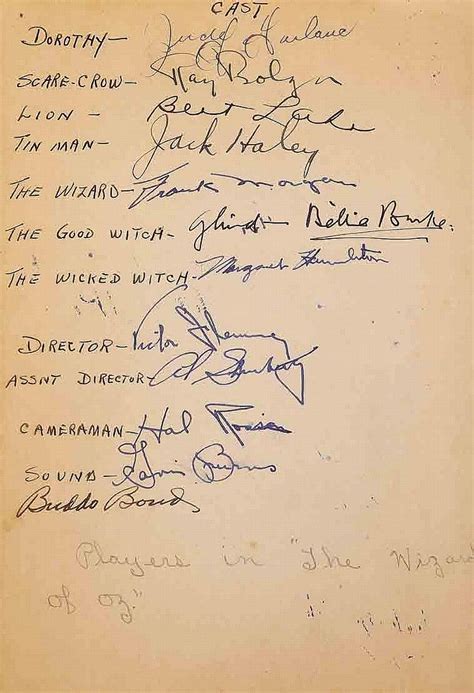 CAST
DOROTHY— Judy Garland
SCARE-CROW— Ray Bolger
LION — Bert Lahr
TIN MAN— Jack Haley
THE WIZARD— Frank Morgan
THE GOOD WITCH— Glinda— Billie Burke.
THE WICKED WITCH— Margaret Hamilton
DIRECTOR— Victor Fleming
ASSNT DIRECTOR— Al
CAMERAMAN— Hal
SOUND—
Players in "The Wizard
of Oz."